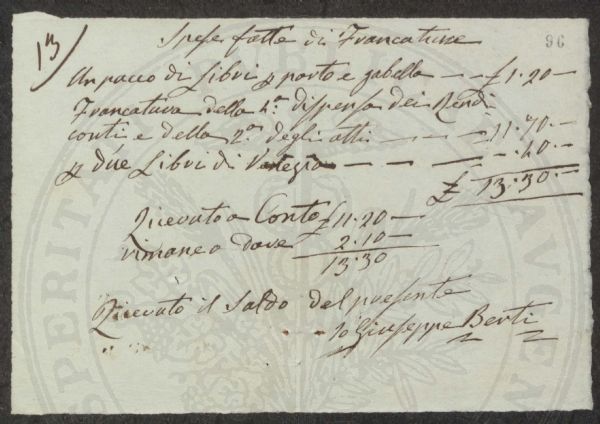 13
96
Spese fatte di Francature
Un pacco di libri p porto e gabella — — £ 1.20 —
Francatura della 4.a dispensa dei Rendi
conti e della 2.a degli atti — — — — 11.70. —
p due Libri di Venezia — — — — . 40 —
£ 13.30. —
Ricevuto a Conto £ 11.20 —
rimane a dare 2.10 —
13.30
Ricevuto il Saldo del presente
Io Giuseppe Berti